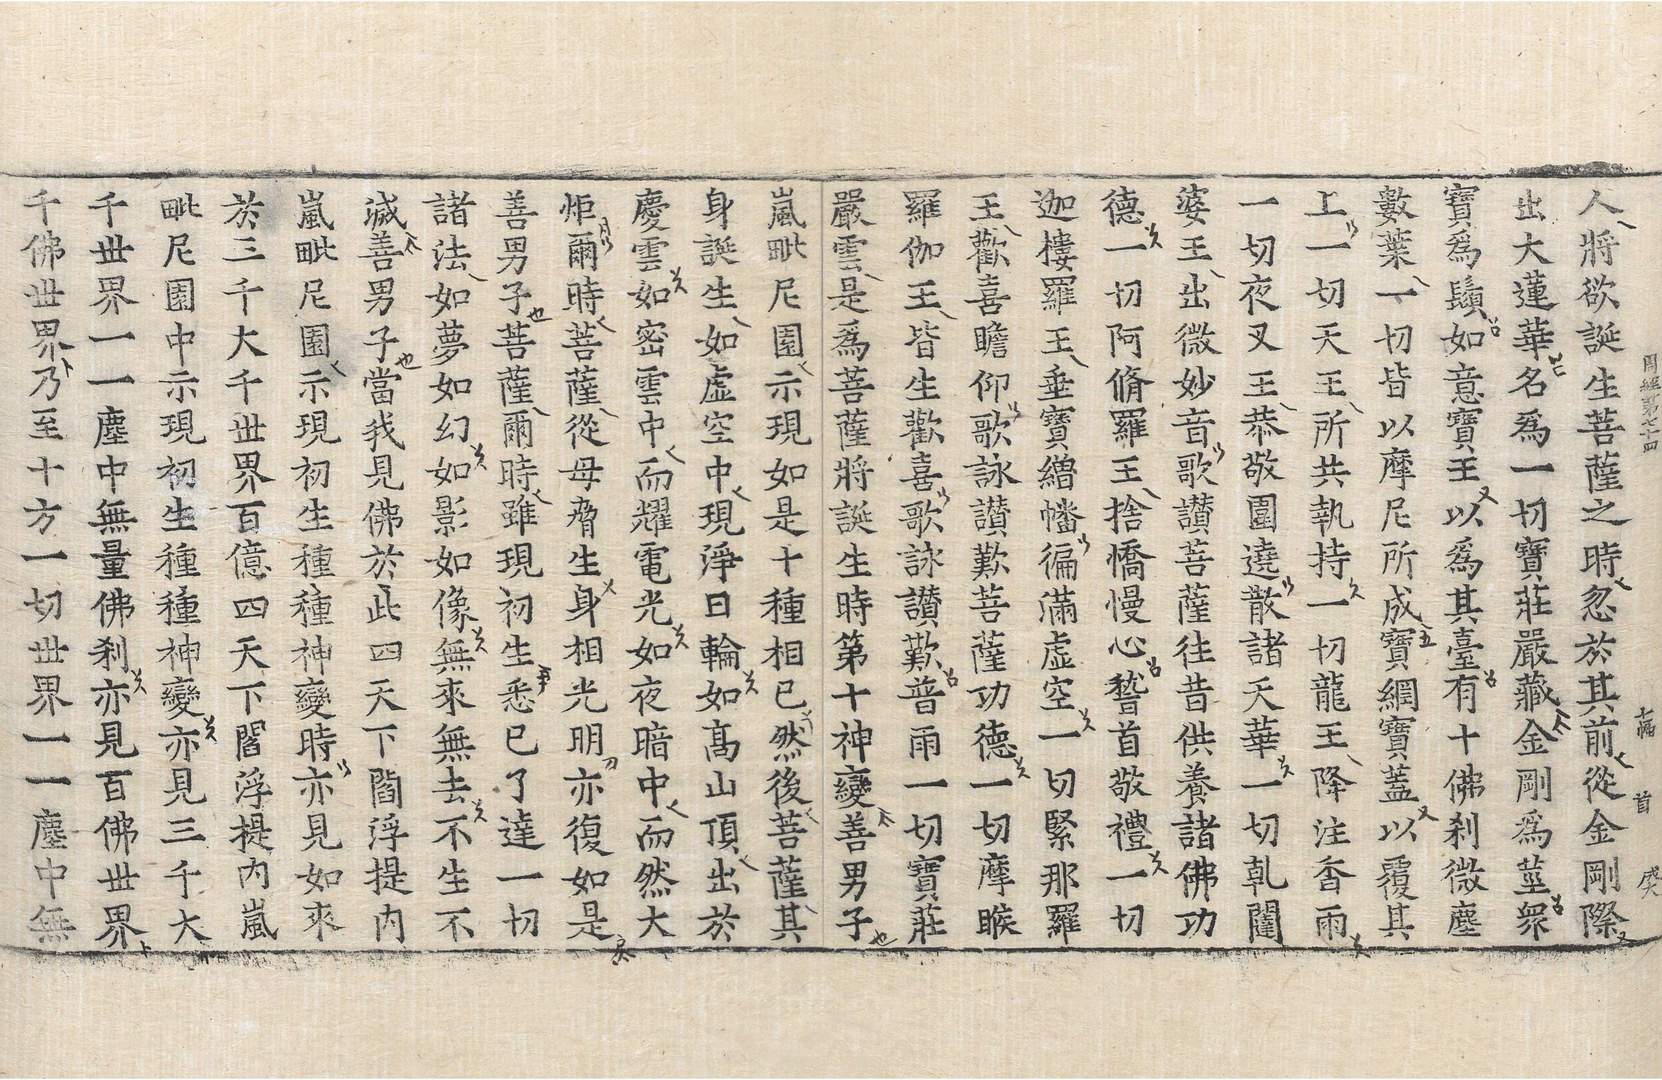 周經第七十四 十幅 首 癸
人將欲誕生菩薩之時忽於其前從金剛際
出大蓮華名爲一切寶莊嚴藏金剛爲莖衆
寶爲鬚如意寶王以爲其臺有十佛刹微塵
數葉一切皆以摩尼所成寶網寶蓋以覆其
上一切天王所共執持一切龍王降注香雨
一切夜叉王恭敬圍遶散諸天華一切乹闥
婆王出微妙音歌讃菩薩往昔供養諸佛功
德一切阿脩羅王捨憍慢心稽首敬禮一切
迦樓羅王垂寶繒幡徧滿虛空一切緊那羅
王歡喜瞻仰歌詠讃歎菩薩功德一切摩睺
羅伽王皆生歡喜歌詠讃歎普雨一切寶莊
嚴雲是爲菩薩將誕生時第十神變善男子
嵐毗尼園示現如是十種相已然後菩薩其
身誕生如虛空中現淨日輪如髙山頂出於
慶雲如密雲中而耀電光如夜暗中而然大
炬爾時菩薩從母脅生身相光明亦復如是
善男子菩薩爾時雖現初生悉已了達一切
諸法如夢如幻如影如像無來無去不生不
滅善男子當我見佛於此四天下閻浮提内
嵐毗尼園示現初生種種神變時亦見如來
於三千大千世界百億四天下閻浮提内嵐
毗尼園中示現初生種種神變亦見三千大
千世界一一塵中無量佛刹亦見百佛世界
千佛世界乃至十方一切世界一一塵中無